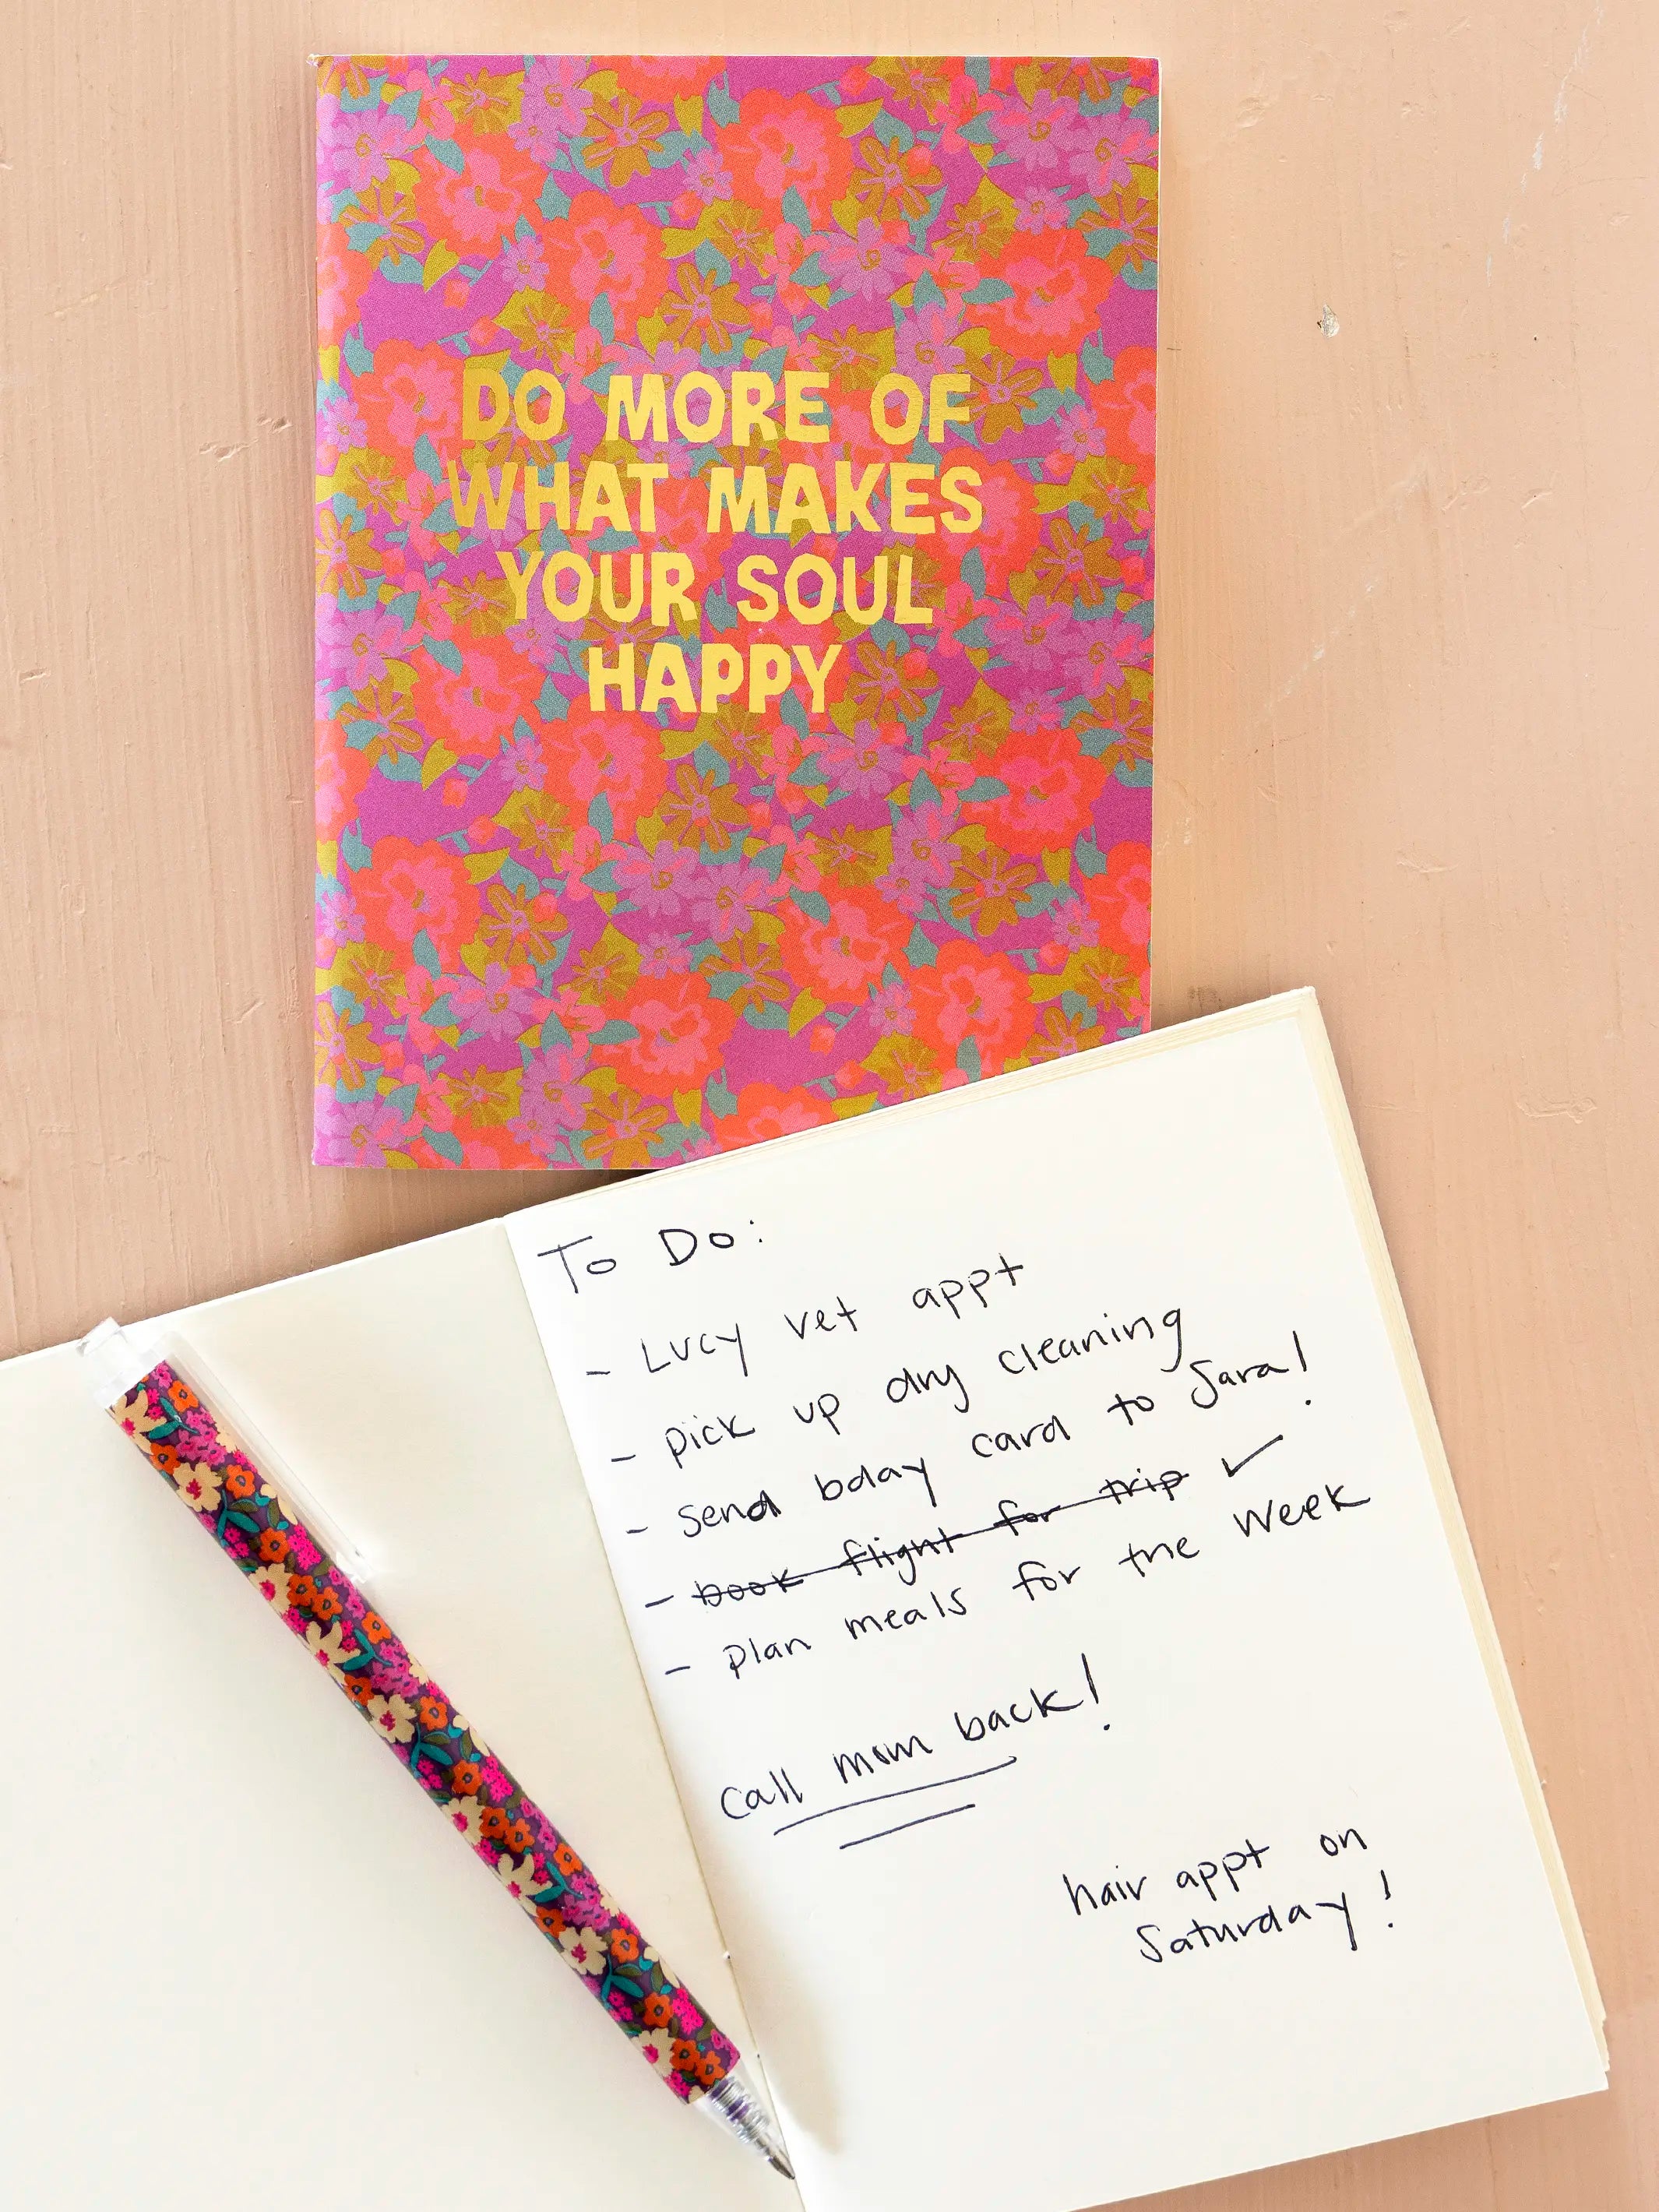 DO MORE OF
WHAT MAKES
YOUR SOUL
HAPPY
To Do:
- Lucy vet appt
- pick up dry cleaning
- send bday card to Sara!
- book flight for trip ✓
- plan meals for the week
call mom back!
hair appt on
Saturday!